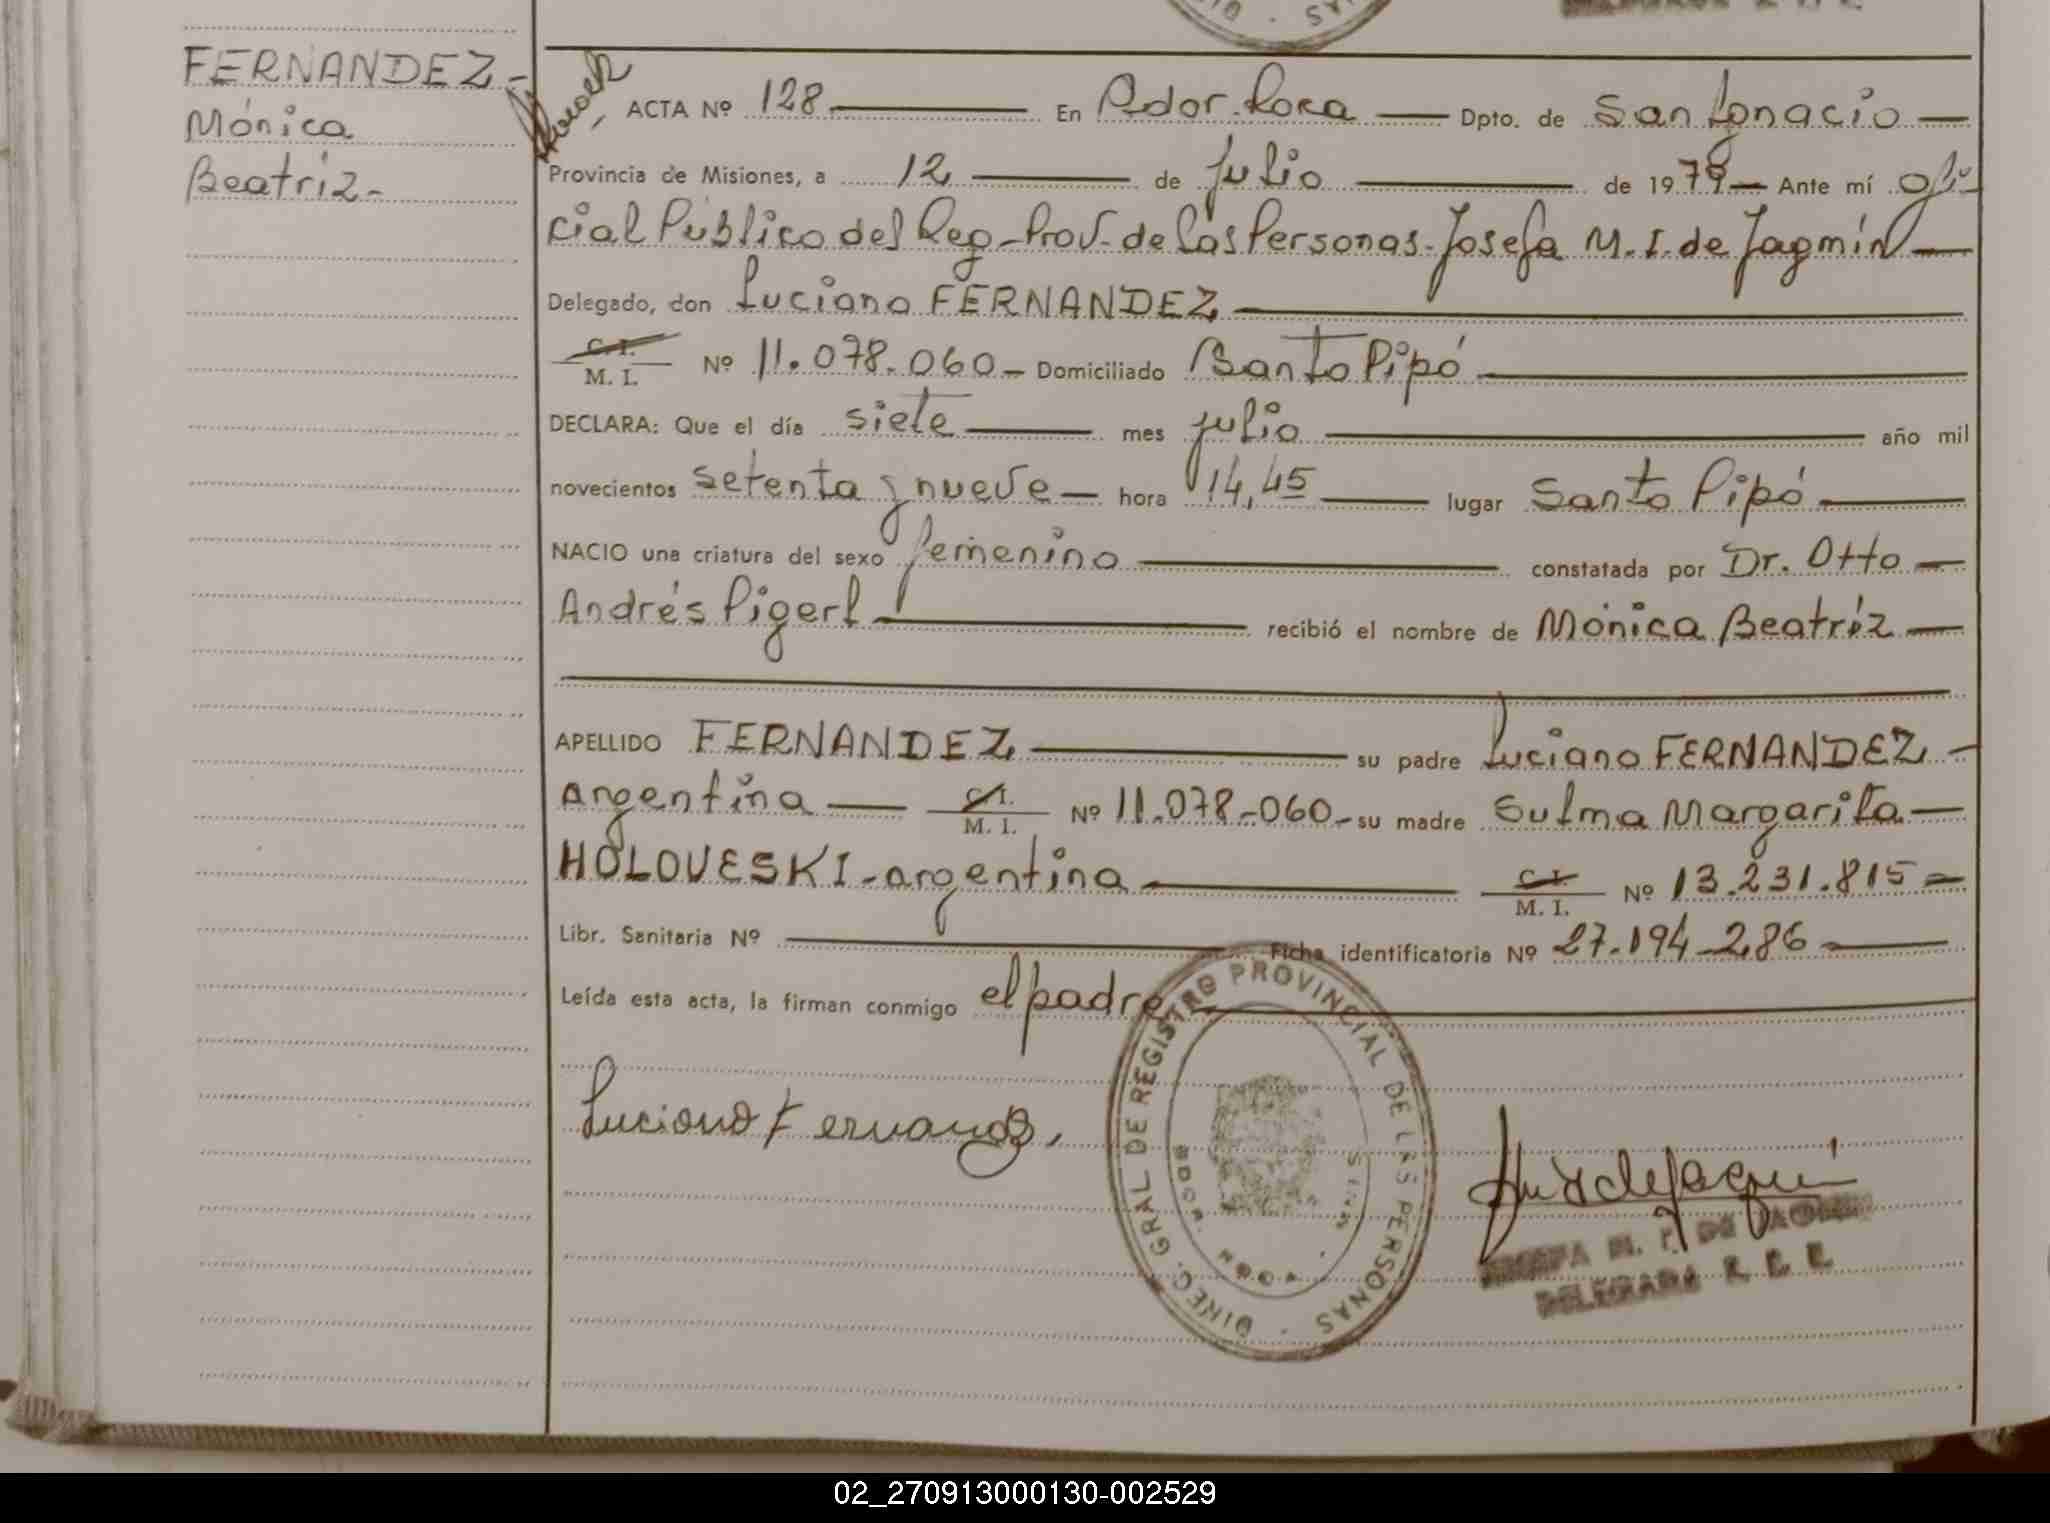 FERNANDEZ-
Mónica
Beatríz-
ACTA Nº 128 En Ador. Roca Dpto. de San Ignacio
Provincia de Misiones, a 12 de Julio de 1979 Ante mí ofi-
cial Público del Reg-Prov-de las Personas-Josefa M.I. de Jagmín
Delegado, don Luciano FERNANDEZ
C. I.
M. I. Nº 11.078.060- Domiciliado Santo Pipó
DECLARA: Que el día siete mes julio año mil
novecientos setenta y nueve hora 14,45 lugar Santo Pipó
NACIO una criatura del sexo femenino constatada por Dr. Otto
Andrés Pigerl recibió el nombre de Mónica Beatríz
APELLIDO FERNANDEZ su padre Luciano FERNANDEZ-
argentina C. I. M. I. Nº 11.078-060- su madre Sulma Margarita
HOLOVESKI-argentina C. I. M. I. Nº 13.231.815
Libr. Sanitaria Nº Ficha identificatoria Nº 27.194-286
Leída esta acta, la firman conmigo el padre
Luciano Fernandez
DIREC. GRAL DE REGISTRO PROVINCIAL DE LAS PERSONAS
M. I. DE
DELEGADA R. P. P.
02_270913000130-002529